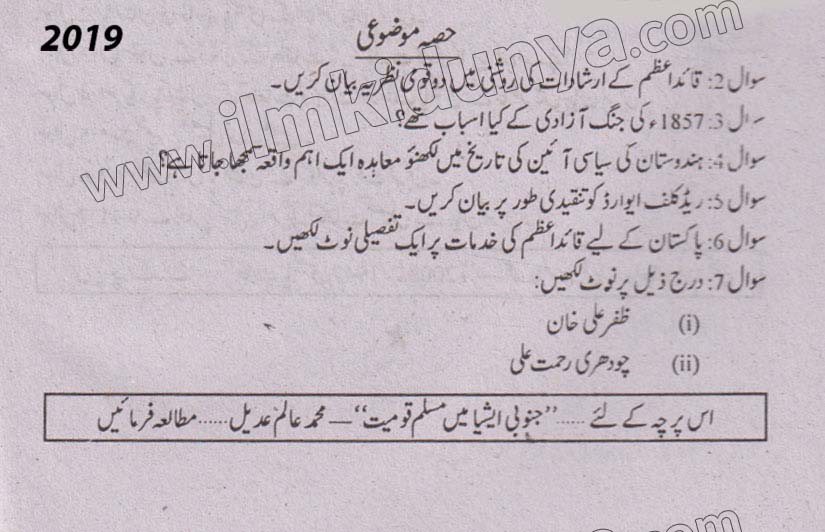 2019
حصہ موضوعی
سوال 2: قائداعظم کے ارشادات کی روشنی میں دو قومی نظریہ بیان کریں۔
سوال 3: 1857ء کی جنگ آزادی کے کیا اسباب تھے؟
سوال 4: ہندوستان کی سیاسی آئین کی تاریخ میں لکھنؤ معاہدہ ایک اہم واقعہ سمجھا جاتا ہے؟
سوال 5: ریڈ کلف ایوارڈ کو تنقیدی طور پر بیان کریں۔
سوال 6: پاکستان کے لیے قائداعظم کی خدمات پر ایک تفصیلی نوٹ لکھیں۔
سوال 7: درج ذیل پر نوٹ لکھیں:
(i) ظفر علی خان
(ii) چودھری رحمت علی
اس پرچہ کے لئے ..... ’’جنوبی ایشیا میں مسلم قومیت‘‘ — محمد عالم عدیل ...... مطالعہ فرمائیں
www.ilmkidunya.com